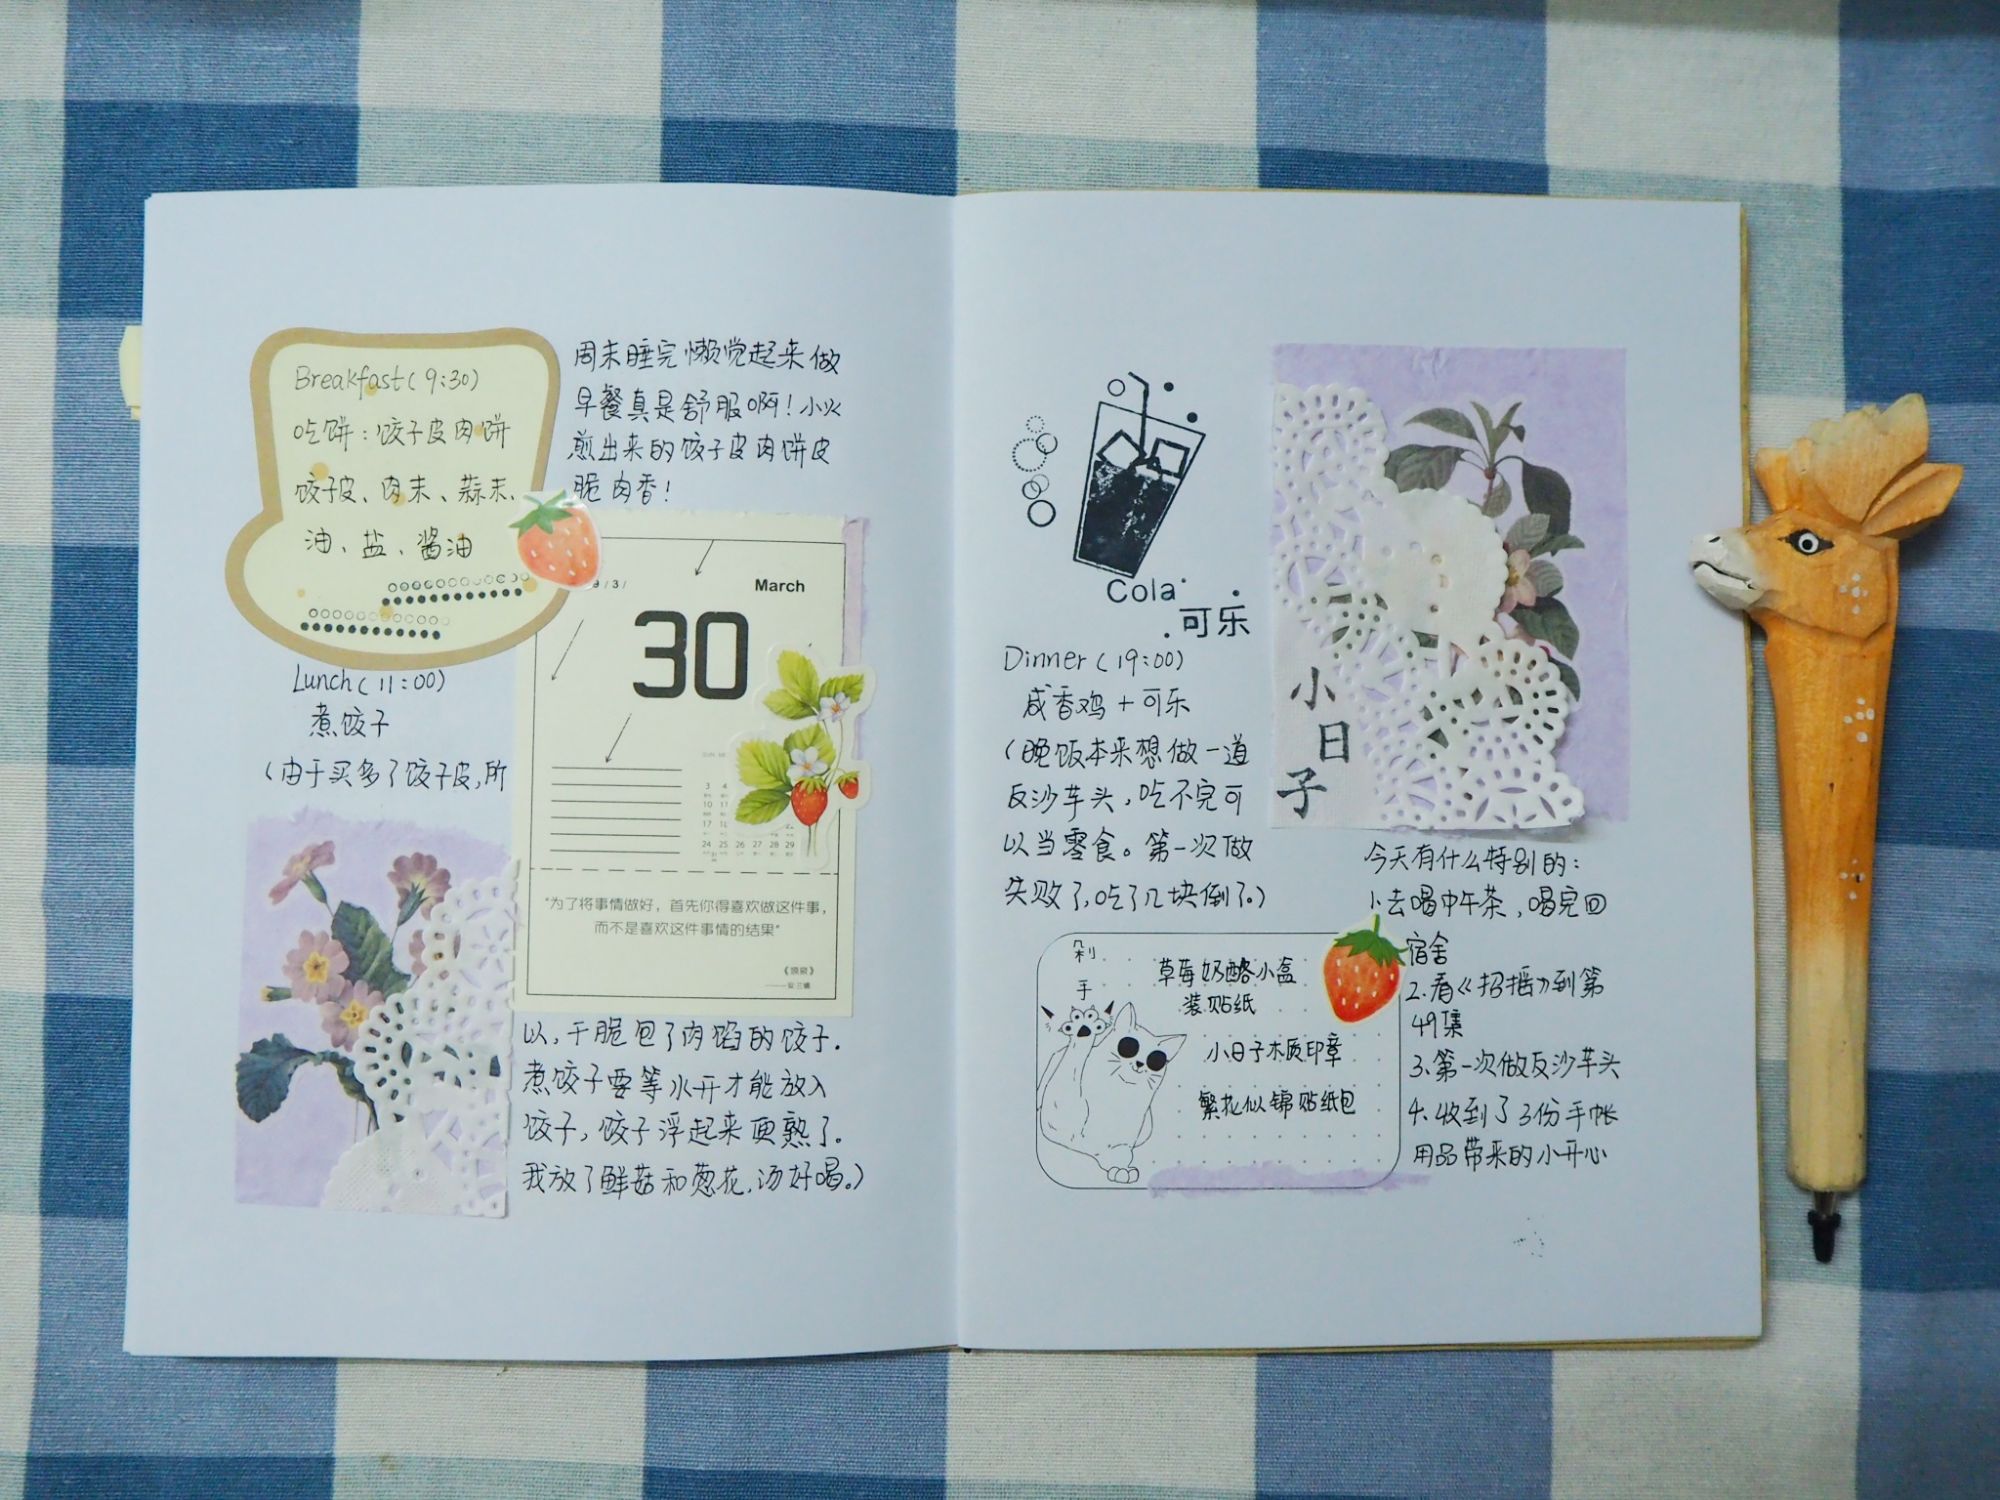 Breakfast(9:30)
吃饼：饺子皮肉饼
饺子皮、肉末、蒜末、
油、盐、酱油
周末睡完懒觉起来做
早餐真是舒服啊！小火
煎出来的饺子皮肉饼皮
脆肉香！
9/3/
March
30
3 4
10 11
17 18
24 25 26 27 28 29
31
“为了将事情做好，首先你得喜欢做这件事，
而不是喜欢这件事情的结果”
《源泉》
——安·兰德
Lunch(11:00)
煮饺子
（由于买多了饺子皮，所
以，干脆包了肉馅的饺子.
煮饺子要等水开才能放入
饺子，饺子浮起来便熟了.
我放了鲜菇和葱花，汤好喝。）
Cola
可乐
Dinner(19:00)
咸香鸡+可乐
（晚饭本来想做一道
反沙芋头，吃不完可
以当零食。第一次做
失败了，吃了几块倒了。）
小
日
子
剁
手
草莓奶酪小盒
装贴纸
小日子木质印章
繁花似锦贴纸包
今天有什么特别的：
1.去喝中午茶，喝完回
宿舍
2.看《招摇》到第
49集
3.第一次做反沙芋头
4.收到了3份手帐
用品带来的小开心